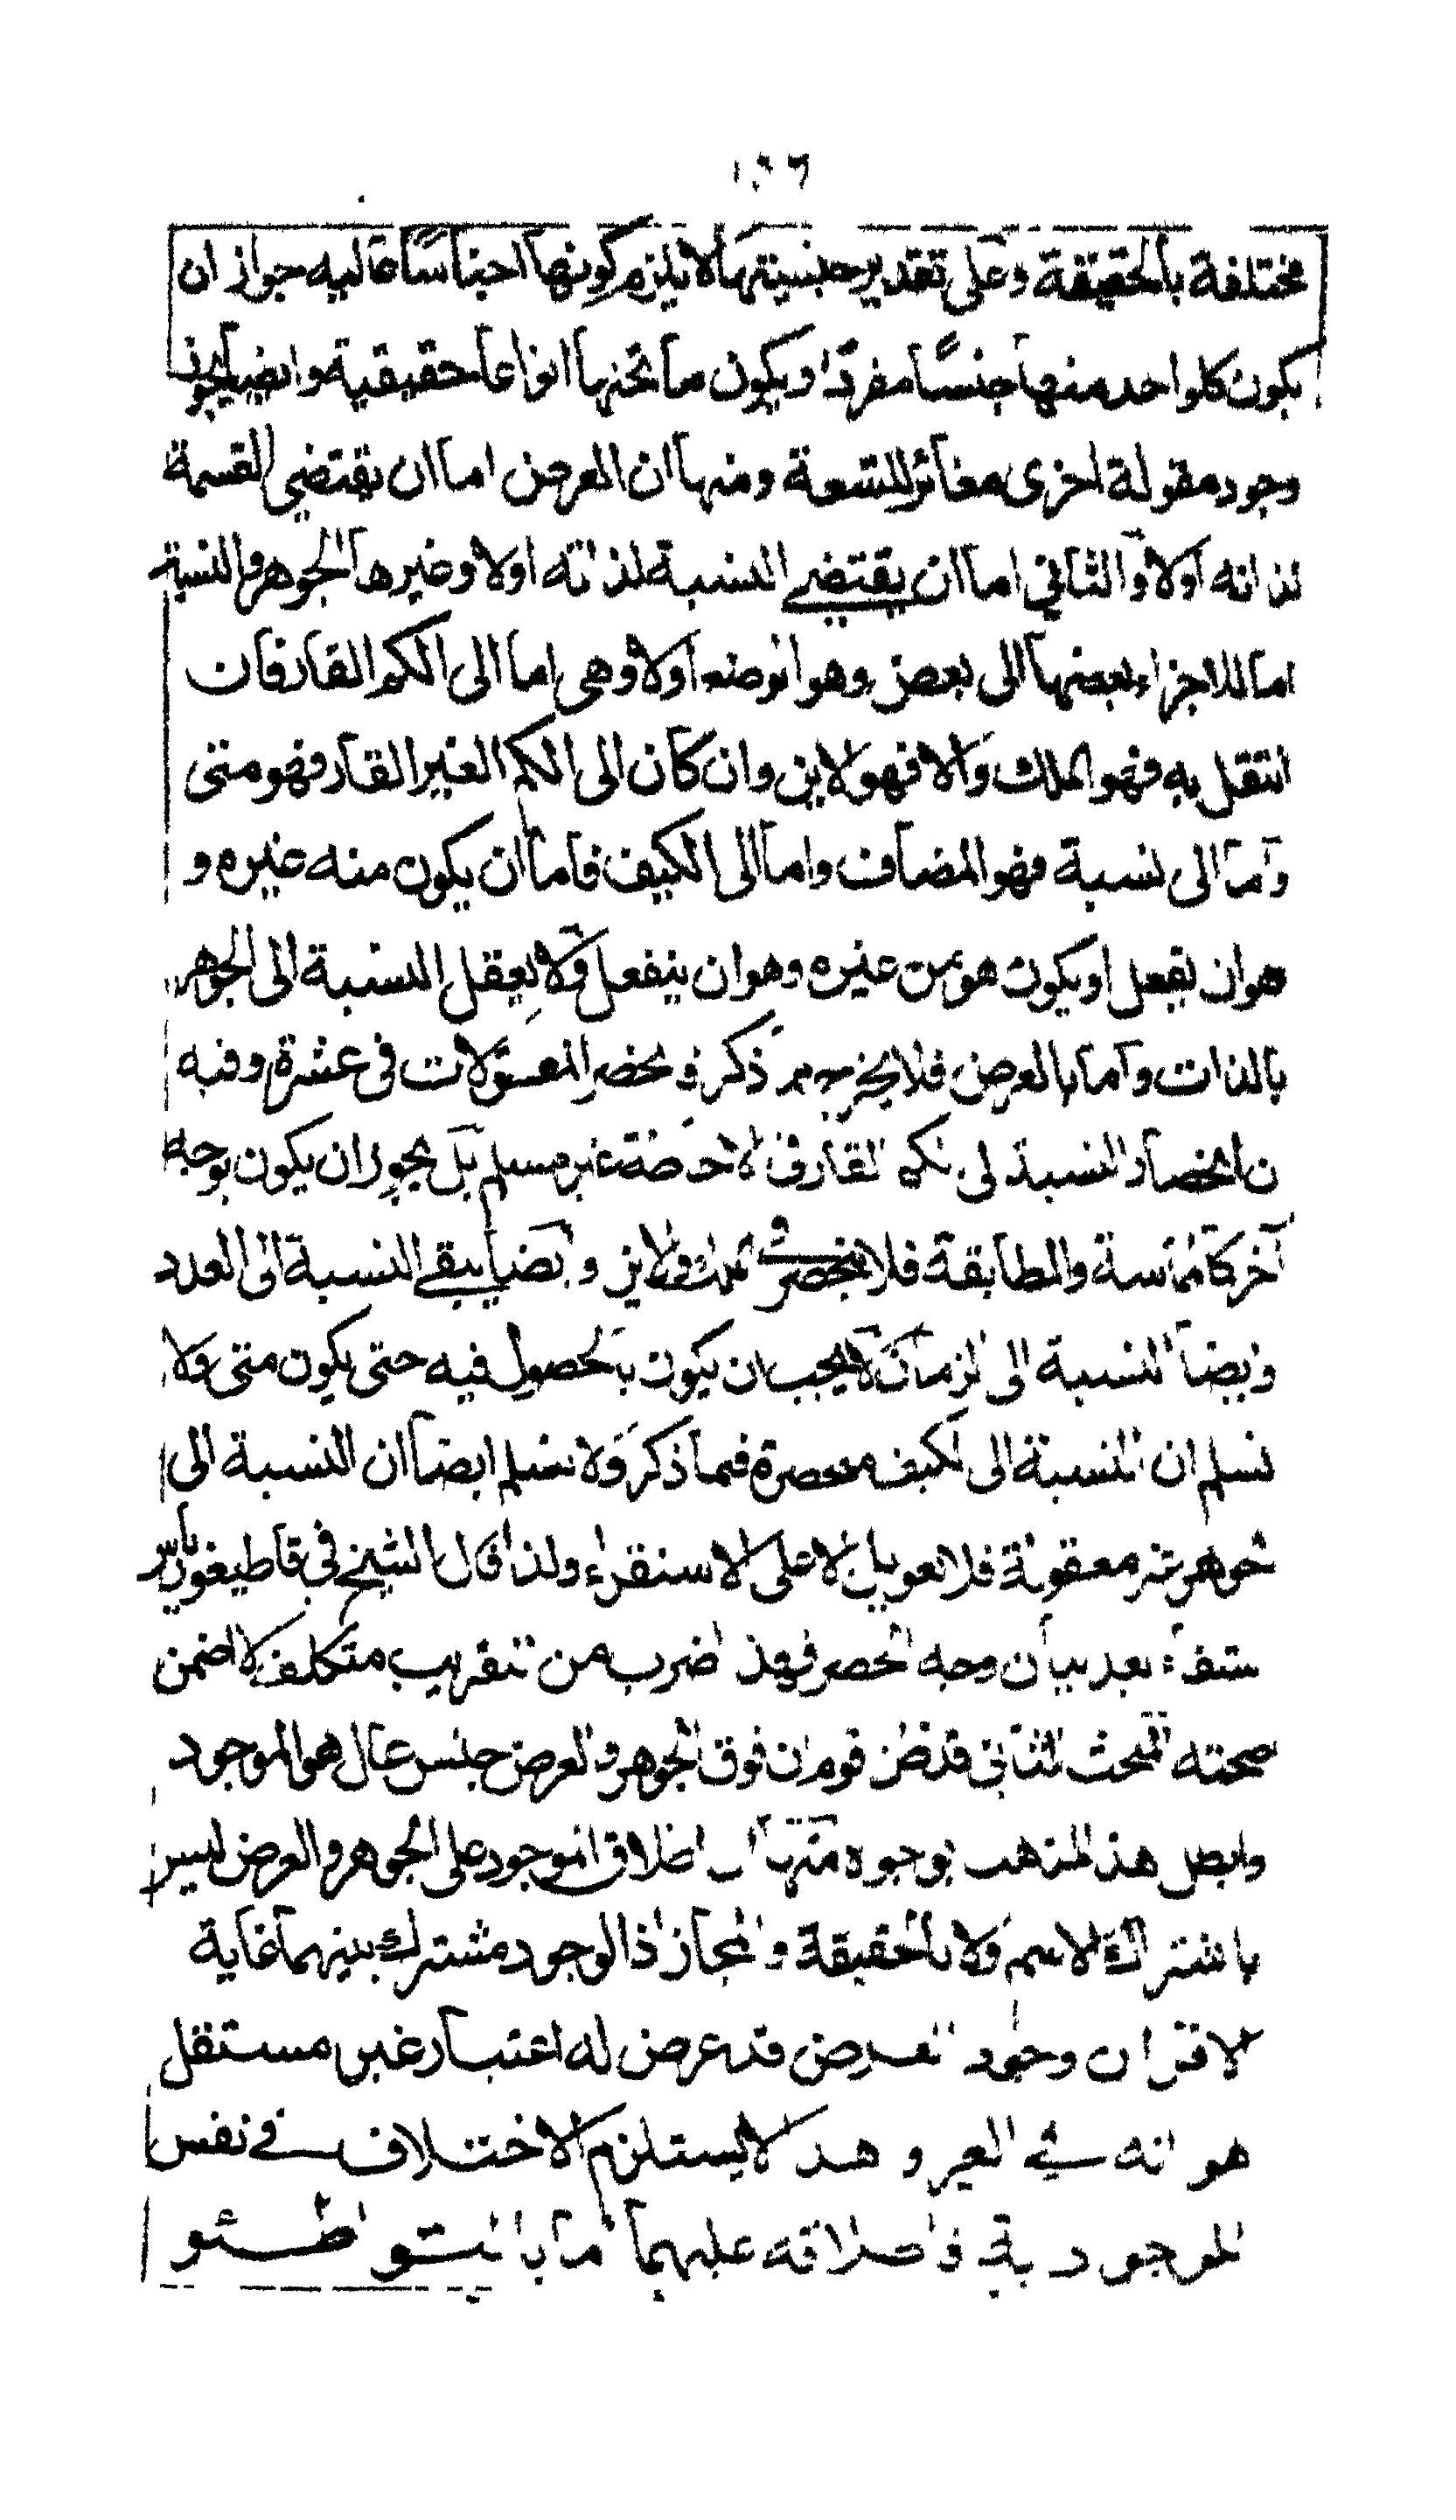 ١٠٦
مختلفة بالحقيقة وعلى تقدير جنسيتها لا يلزم كونها اجناسًا عاليه جواز ان
يكون كلواحد منها جنسًا مفردًا ويكون ما تحتها انواعا حقيقية وايضا يجوز
وجود مقولة اخرى مغائر للتسعة ومنها ان العرض اما ان يقتضي القسمة
لذاته اولا والثاني اما ان يقتضي النسبة لذاته اولا وغيرها الجوهر والنسبة
اما للاجزاء بعضها الى بعض وهو الوضع اولا وهي اما الى الكم القار فان
انتقل به فهو الملك والا فهو لاين وان كان الى الكم الغير القار فهو متى
واما الى نسبة فهو المضاف واما الى الكيف فاما ان يكون منه غيره و
هو ان يفعل او يكون هو من غيره وهو ان ينفعل ولا يعقل النسبة الى الجوهر
بالذات واما بالعرض فلا يخرج مما ذكر فـ نحضر المقولات في عشرة وفيه
ن انحصار النسبة لى لكم القار في الاحاطة غير مسلم بل يجوز ان يكون بوجه
آخر كالمماسة والمطابقة فلا ينحصر في الملك والاين وايضا يبقى النسبة الى العدد
وايضا النسبة الى الزمان لا يجب ان يكون بالحصول فيه حتى يكون متى ولا
نسلم ان النسبة الى الكيف منحصرة فيما ذكر ولا نسلم ايضا ان النسبة الى
الجوهر غير معقولة فلا تعويل الا على الاستقراء ولذا قال الشيخ في قاطيغورياس
الشفاء بعد بيان وجه الحصر فهذا ضرب من التقريب متكلف لا اضمن
صحته المبحث الثاني قد ظن قوم ان فوق الجوهر والعرض جنس عال هو الموجود
وابطل هذا المذهب بوجوه منها ان اطلاق الموجود على الجوهر والعرض ليس
باشتراك الاسم ولا بالحقيقة والمجاز اذ الوجود مشترك بينهما غاية
الاقتران وجود العرض قد عرض له اعتبار غير مستقل
هو انه في الغير وهذا لا يستلزم الاختلاف في نفس
الموجودية فاطلاقه عليهما اما بالتواطئو